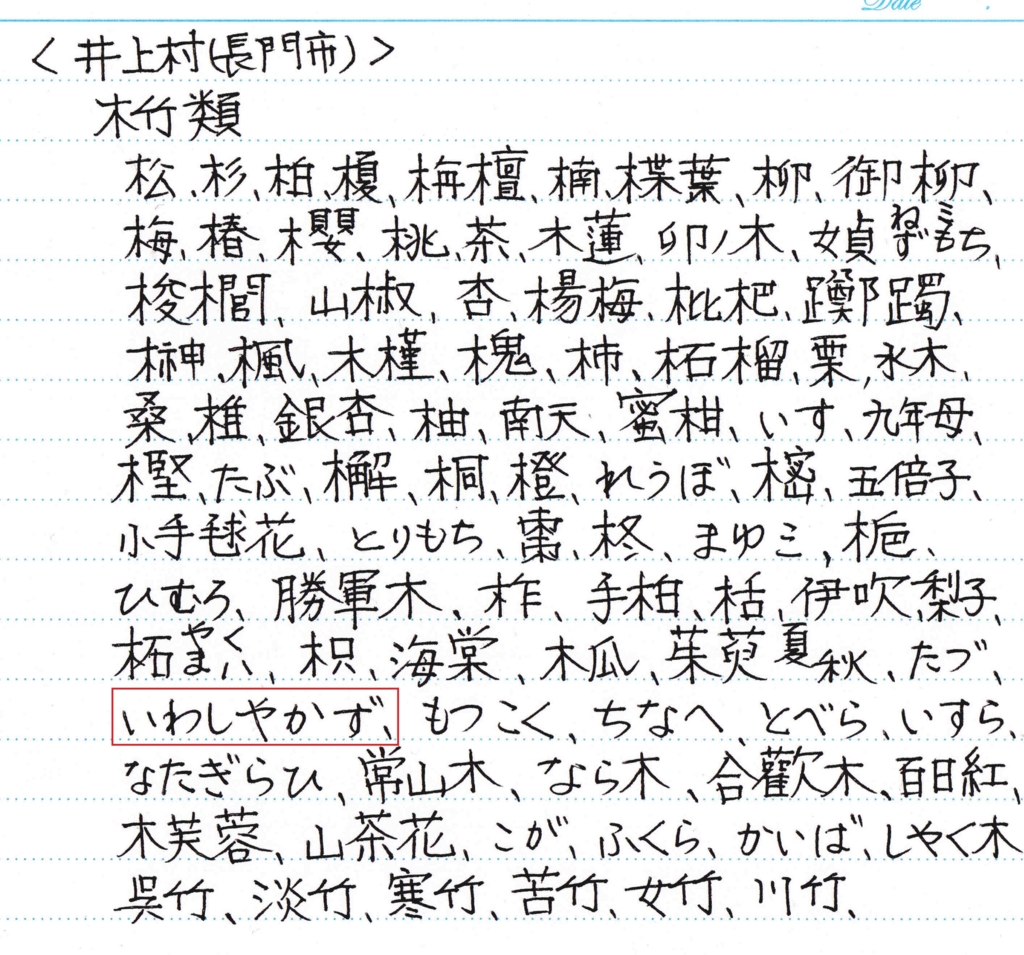 Date
<井上村(長門市)>
木竹類
松、杉、柏、榎、栴檀、楠、楪葉、柳、御柳、
梅、椿、櫻、桃、茶、木蓮、卯ノ木、女貞 ねず ミもち、
梭櫚、山椒、杏、楊梅、枇杷、躑躅、
榊、楓、木槿、槐、柿、柘榴、栗、水木、
桑、椎、銀杏、柚、南天、蜜柑、いす、九年母、
樫、たぶ、檞、桐、橙、れうぼ、樒、五倍子、
小手毬花、とりもち、棗、柊、まゆミ、梔、
ひむろ、勝軍木、柞、手柑、栝、伊吹、梨子、
柘、枳、海棠、木瓜、茱萸 夏 秋、たづ、
いわしやかず、もつこく、ちなへ、とべら、いすら、
なたぎらひ、常山木、なら木、合歡木、百日紅、
木芙蓉、山茶花、こが、ふくら、かいば、しやく木
呉竹、淡竹、寒竹、苦竹、女竹、川竹、